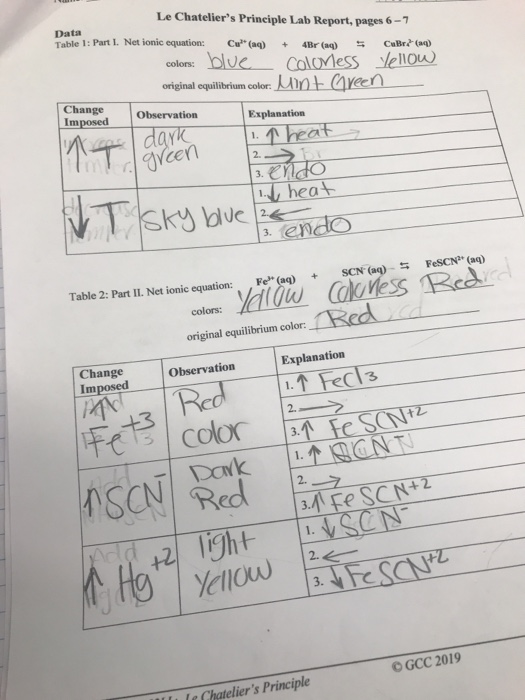 Le Chatelier's Principle Lab Report, pages 6 – 7
Data
Table 1: Part I. Net ionic equation: Cu²⁺ (aq) + 4Br⁻(aq) ⇆ CuBr₄²⁻ (aq)
colors: blue colorless Yellow
original equilibrium color: Mint Green
Change Imposed Observation Explanation
↑T dark green 1. ↑ heat
2. →
3. endo
↓T sky blue 1. ↓ heat
2. ←
3. endo
Table 2: Part II. Net ionic equation: Fe³⁺ (aq) + SCN⁻(aq) ⇆ FeSCN²⁺ (aq)
colors: Yellow Colorless Red
original equilibrium color: Red
Change Imposed Observation Explanation
Fe+3 Red color 1. ↑ FeCl3
2. →
3. ↑ FeSCN+2
↑SCN⁻ Dark Red 1. ↑ SCN
2. →
3. ↑ FeSCN+2
↑ Hg+2 light Yellow 1. ↓ SCN⁻
2. ←
3. ↓ FeSCN+2
© GCC 2019
Le Chatelier's Principle